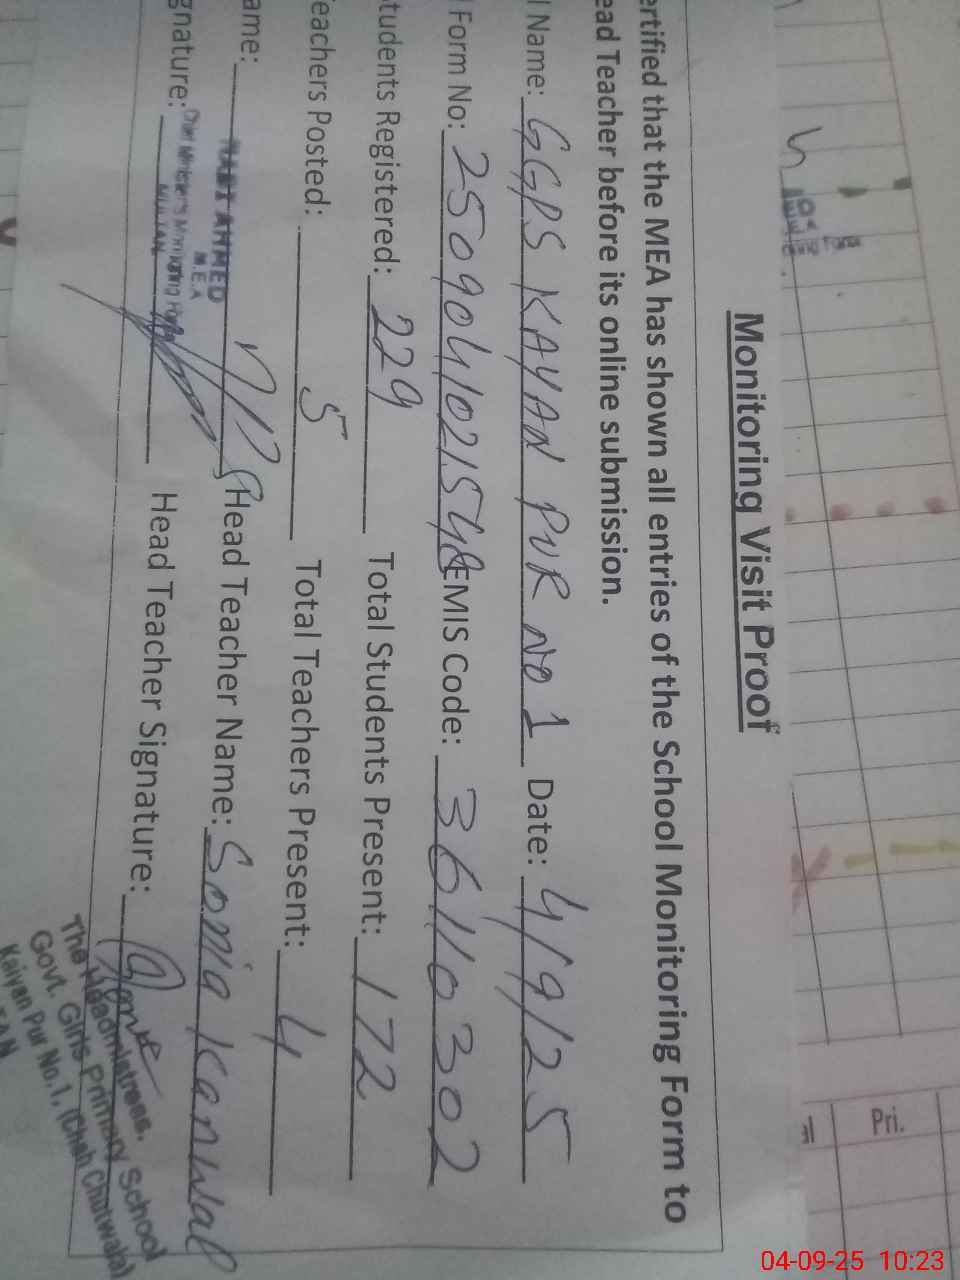 Monitoring Visit Proof
ertified that the MEA has shown all entries of the School Monitoring Form to
ead Teacher before its online submission.
l Name: GGPS KAYAN PUR No 1 Date: 4/9/25
Form No: EMIS Code: 36110302
tudents Registered: 229 Total Students Present: 172
eachers Posted: 5 Total Teachers Present: 4
ame: AHMED Head Teacher Name: Sonia Kanwal
M.E.A
gnature: Chief Minister's Monitoring Head Teacher Signature:
MULTAN
The Headmistress,
Govt. Girls Primary School
Kaiyan Pur No.1, (Chah
Pri.
04-09-25 10:23